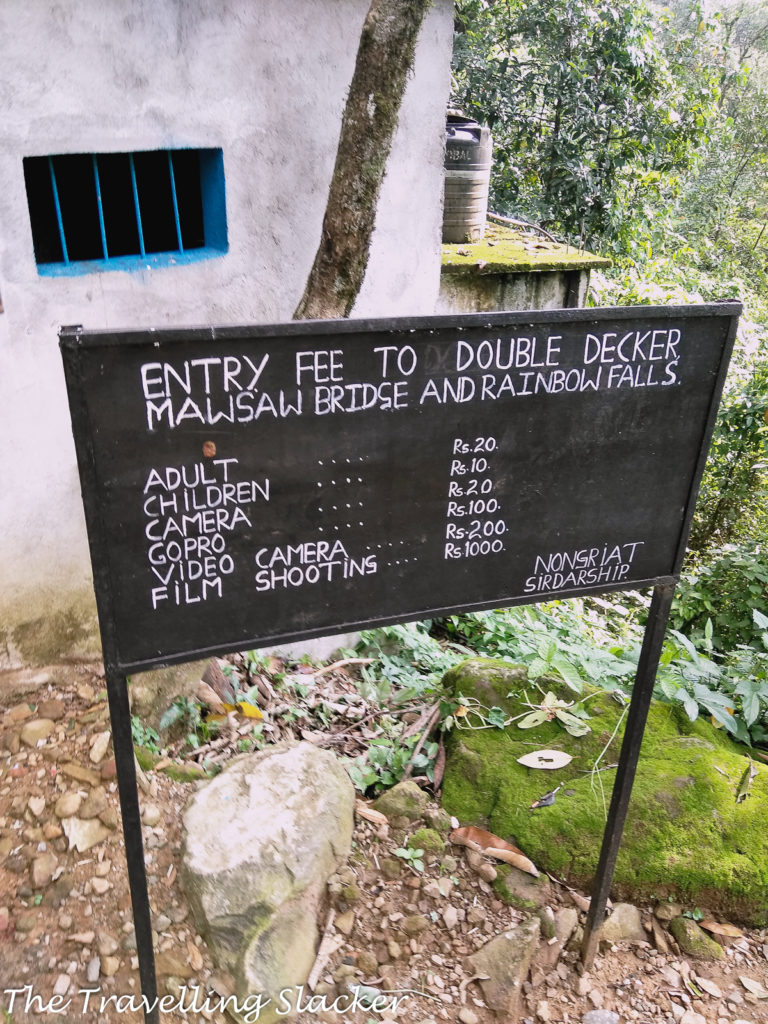 ENTRY FEE TO DOUBLE DECKER,
MAWSAW BRIDGE AND RAINBOW FALLS.
ADULT ..... Rs.20.
CHILDREN .... Rs.10.
CAMERA .... Rs.20.
GOPRO .... Rs.100.
VIDEO CAMERA ...... Rs.200.
FILM SHOOTING .... Rs.1000.
NONGRIAT
SIRDARSHIP.
The Travelling Slacker